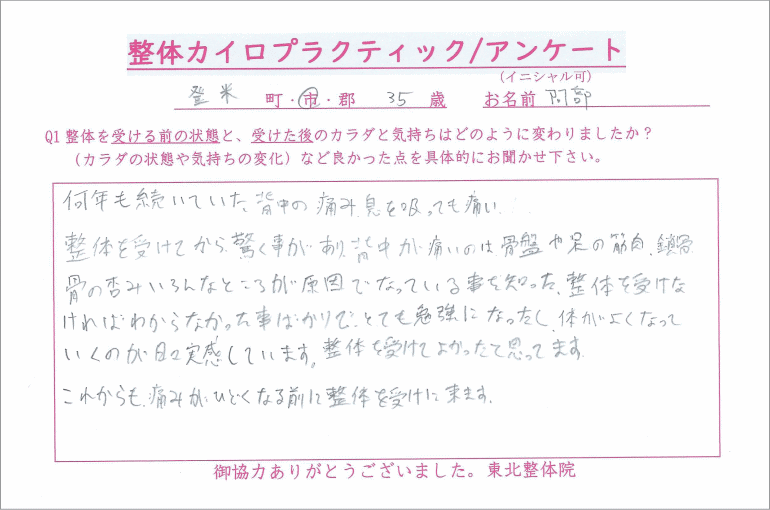 整体カイロプラクティック/アンケート
(イニシャル可)
登米 町・市・郡 35 歳 お名前 阿部
Q1整体を受ける前の状態と、受けた後のカラダと気持ちはどのように変わりましたか？
（カラダの状態や気持ちの変化）など良かった点を具体的にお聞かせ下さい。
何年も続いていた、背中の痛み、息を吸っても痛い…
整体を受けてから、驚く事があり、背中が痛いのは、骨盤や足の筋肉、鎖骨
骨の歪みいろんなところが原因でなっている事を知った、整体を受けな
ければわからなかった事ばかりで、とても勉強になったし、体がよくなって
いくのが日々実感しています。整体を受けてよかったと思ってます。
これからも、痛みがひどくなる前に整体を受けに来ます。
御協力ありがとうございました。東北整体院